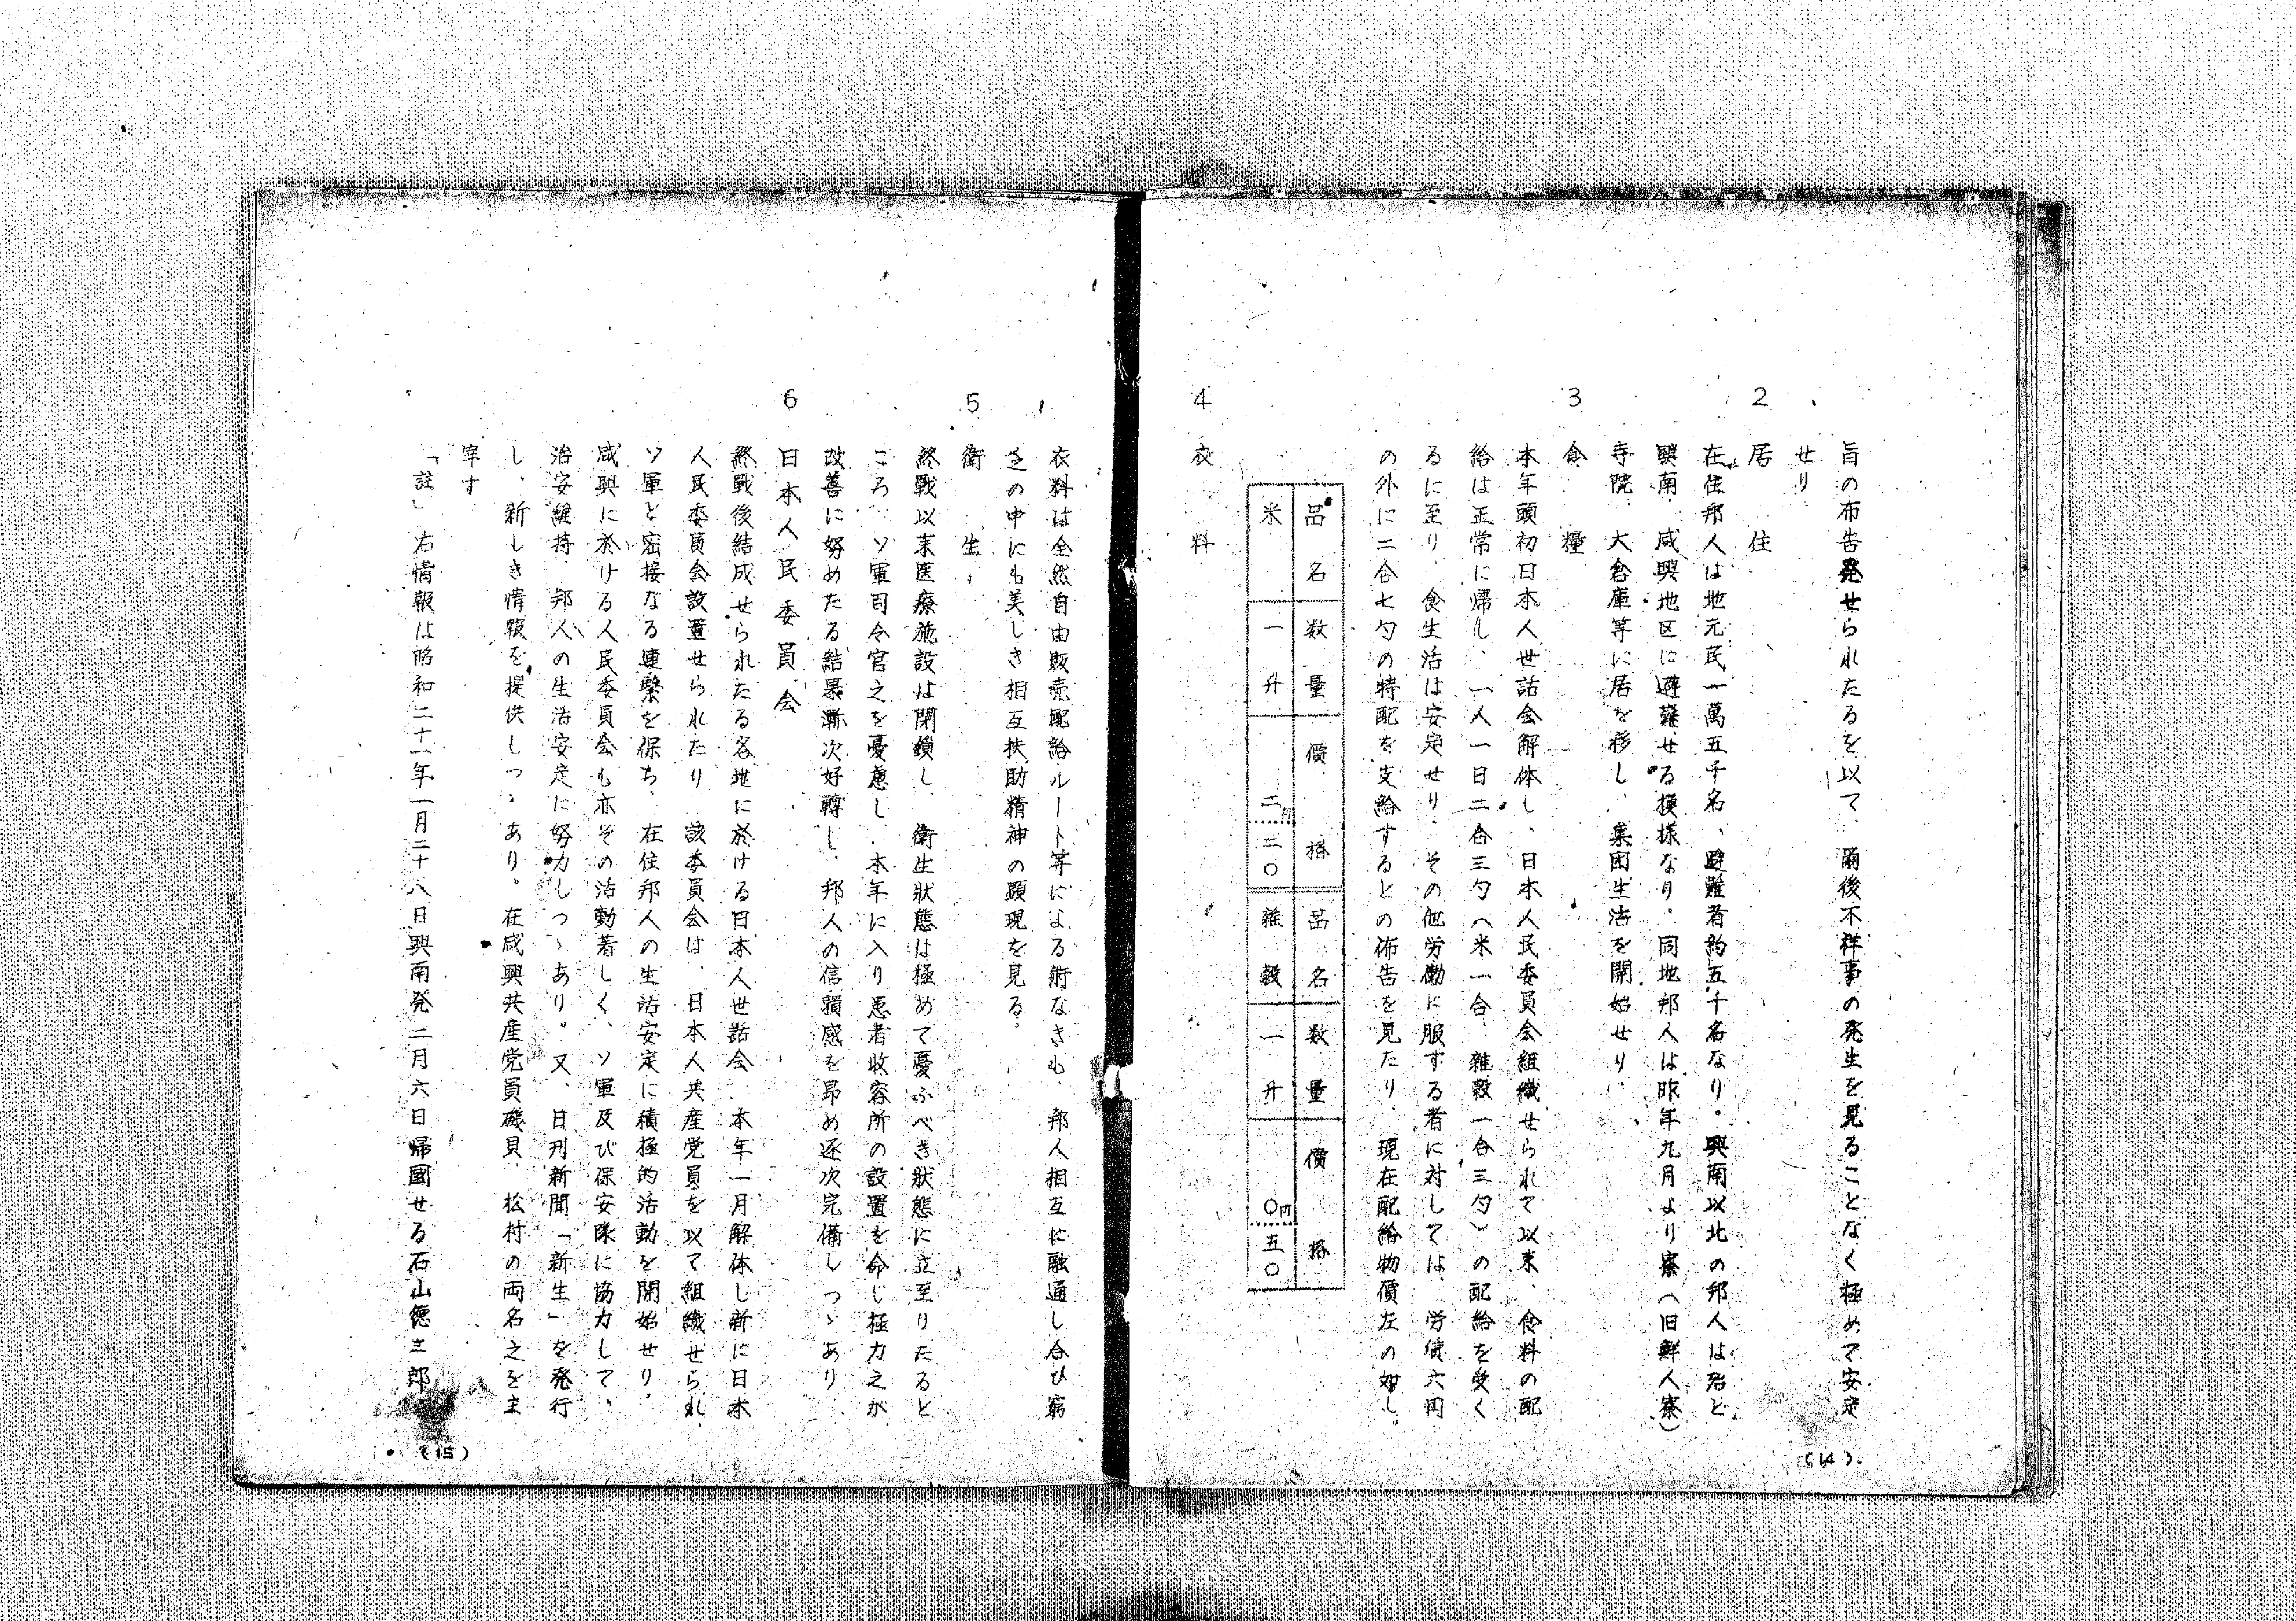 旨の布告発せられたるを以て、爾後不祥事の発生を見ることなく極めて安定
せり
2 居住
在住邦人は地元民一萬五千名、避難者約五千名なり。興南以北の邦人は殆ど
興南、咸興地区に避難せる模様なり。同地邦人は昨年九月より寮(旧鮮人寮)
寺院、大倉庫等に居を移し、集団生活を開始せり
3 食糧
本年頭初日本人世話会解体し、日本人民委員会組織せられて以来、食料の配
給は正常に帰し、一人一日二合三勺(米一合、雑穀一合三勺)の配給を受く
るに至り、食生活は安定せり。その他労働に服する者に対しては、労賃六円
の外に二合七勺の特配を支給するとの佈告を見たり、現在配給物價左の如し。
品名 数量 價格 品名 数量 價格
米 一升 二円二〇 雑穀 一升 〇円五〇
4 衣料
衣料は全然自由販売配給ルート等による術なきも、邦人相互に融通し合ひ窮
乏の中にも美しき相互扶助精神の顕現を見る。
5 衛生
終戦以来医療施設は閉鎖し、衛生狀態は極めて憂ふべき狀態に立至りたると
ころ、ソ軍司令官之を憂慮し、本年に入り患者收容所の設置を命じ極力之が
改善に努めたる結果漸次好轉し、邦人の信頼感を昂め逐次完備しつゝあり
6 日本人民委員会
終戦後結成せられたる各地に於ける日本人世話会、本年一月解体し新に日本
人民委員会設置せられたり、該委員会は、日本人共産党員を以て組織せられ
ソ軍と密接なる連繋を保ち、在住邦人の生活安定に積極的活動を開始せり。
咸興に於ける人民委員会も亦その活動著しく、ソ軍及び保安隊に協力して、
治安維持、邦人の生活安定に努力しつゝあり。又、日刊新聞「新生」を発行
し、新しき情報を提供しつゝあり。在咸興共産党員磯貝、松村の両名之を主
宰す
「註」右情報は昭和二十一年一月二十八日興南発二月六日帰國せる石山徳三郎
(14)
(15)